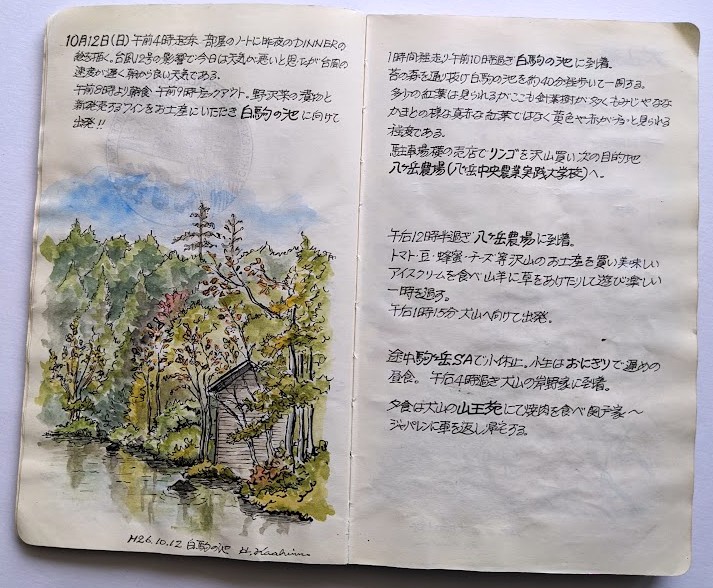 10月12日(日) 午前4時起床 部屋のノートに昨夜のDINNERの
絵を描く。台風12号の影響で今日は天気が悪いと思ったが台風の
速度が遅く朝から良い天気である。
午前8時より朝食 午前9時チェックアウト。野沢菜の漬物と
新発売するワインをお土産にいただき 白駒の池 に向けて
出発!!
H26.10.12 白駒の池
1時間程走り午前10時過ぎ 白駒の池 に到着
苔の森を通り抜け白駒の池を約40分程歩いて一周する。
多少の紅葉は見られるがここも針葉樹が多くもみじやなな
かまどの様な真赤な紅葉ではなく黄色や赤が少々見られる
程度である。
駐車場横の売店でリンゴを沢山買い次の目的地
八ヶ岳農場(八ヶ岳中央農業実践大学校)へ。
午后12時半過ぎ 八ヶ岳農場に到着。
トマト・豆・蜂蜜・チーズ等沢山のお土産を買い美味しい
アイスクリームを食べ山羊に草をあげたりして遊び楽しい
一時を過す。
午后1時15分 犬山へ向けて出発。
途中駒ヶ岳SAで小休止。小生はおにぎりで遅めの
昼食。午后4時過ぎ犬山の 家に到着。
夕食は犬山の山王苑にて焼肉を食べ 家〜
ジャパレンに車を返し帰宅する。